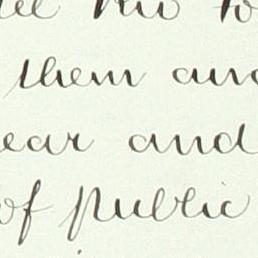 them and
ear and
of public